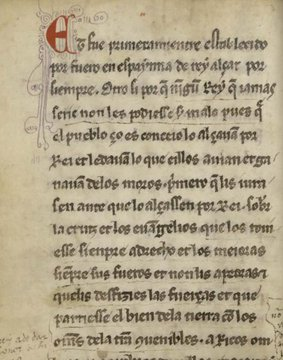 Et fue primeramientre establecido
por fuero en espaynna de rey alçar por
siempre. Otro si por q̃ nigũ Rey q̃ iamas
serie non les podiesse seer malo pues q̃
el pueblo ço es conceio lo alçauan por
Rei et le dauã lo que eillos auian et ga
nauan de los moros. p̃mero q̃ lis iuras
sen ante que lo alçassen por Rei. sobr̃
la cruz et los euãgelios. que los tou
iesse siempre a drecho et les meioras
siẽpre sus fueros et non lis apeoras. i
que lis desfizies las fuerças et que
partiesse el bien de la tierra cõ los
om̃s de la tr̃a conuenibles. a Ricos om